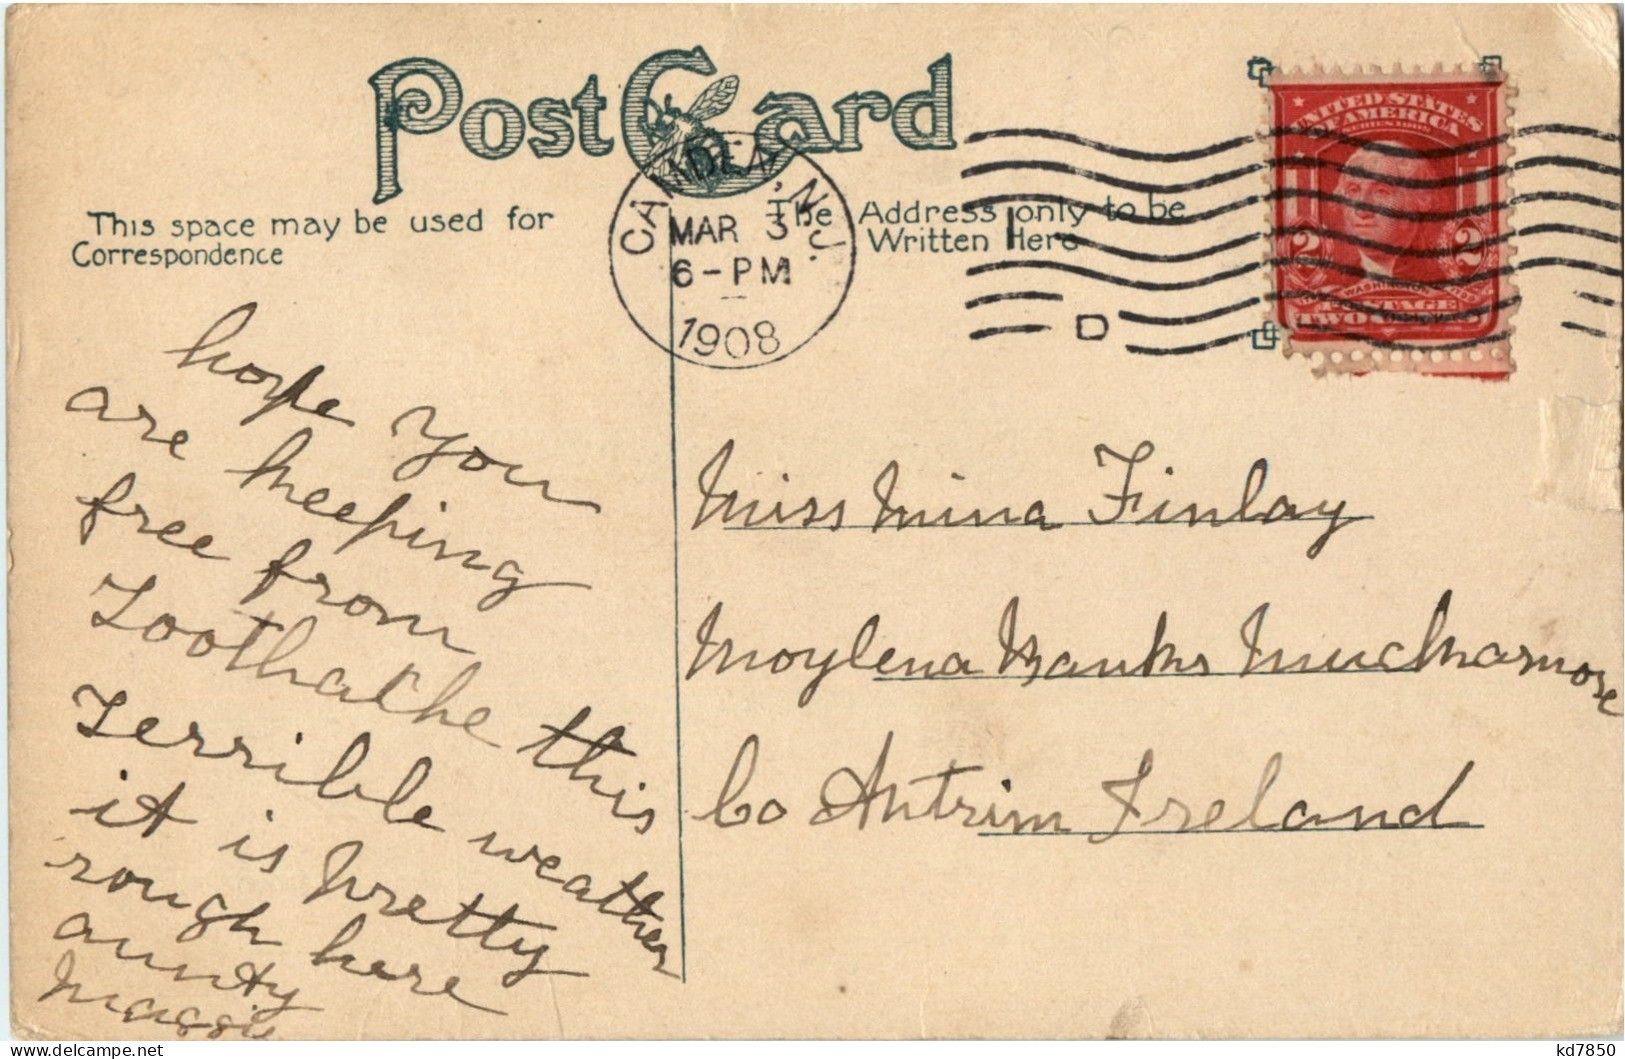 Post Card
This space may be used for
Correspondence
The Address only to be
Written Here
CAMDEN, N.J.
MAR 3
6-PM
1908
D
UNITED STATES
OF AMERICA
SERIES 1902
2 2
WASHINGTON
POSTAGE
TWO CENTS
hope you
are keeping
free from
Toothache this
Terrible weather
it is pretty
rough here
aunty
Maggie
Miss Mina Finlay
Moylena Banks Muckamore
Co Antrim Ireland
delcampe.net
kd7850